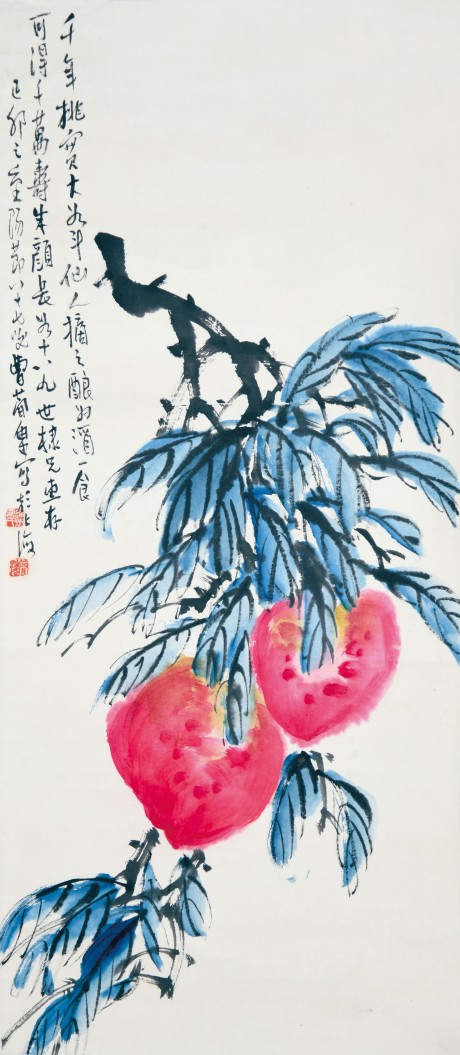 千年桃實大如斗仙人摘之酿为酒一食
可得千萬壽朱顏長如十八九世棣兄惠存
己卯之重陽節八十七叟曹簡樓寫於上海